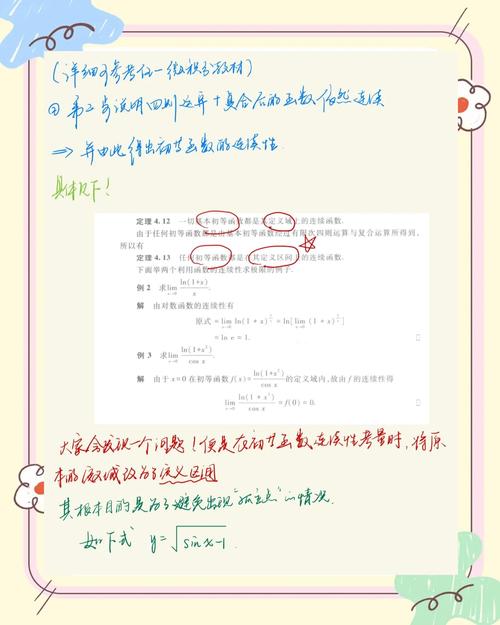 (详细可参考任一微积分教材)
② 第二步说明四则运算+复合后的函数依然连续
⇒ 并由此得出初等函数的连续性.
具体见下!
定理 4.12 一切基本初等函数都是其定义域上的连续函数.
由于任何初等函数都是由基本初等函数经过有限次四则运算与复合运算所得到,
所以有
定理 4.13 任何初等函数都是在其定义区间上的连续函数.
下面举两个利用函数的连续性求极限的例子.
例 2 求 lim_{x→0} ln(1+x)/x.
解 由对数函数的连续性有
原式 = lim_{x→0} ln(1+x)^{1/x} = ln[lim_{x→0} (1+x)^{1/x}]
= ln e = 1.
例 3 求 lim_{x→0} ln(1+x²)/cos x.
解 由于 x=0 在初等函数 f(x) = ln(1+x²)/cos x 的定义域内,故由 f 的连续性得
lim_{x→0} ln(1+x²)/cos x = f(0) = 0.
大家会发现一个问题!便是在初等函数连续性考量时,将原
本的定义域改为了定义区间
其根本目的是为了避免出现"孤立点"的情况.
如下式 y=√(sinx-1).